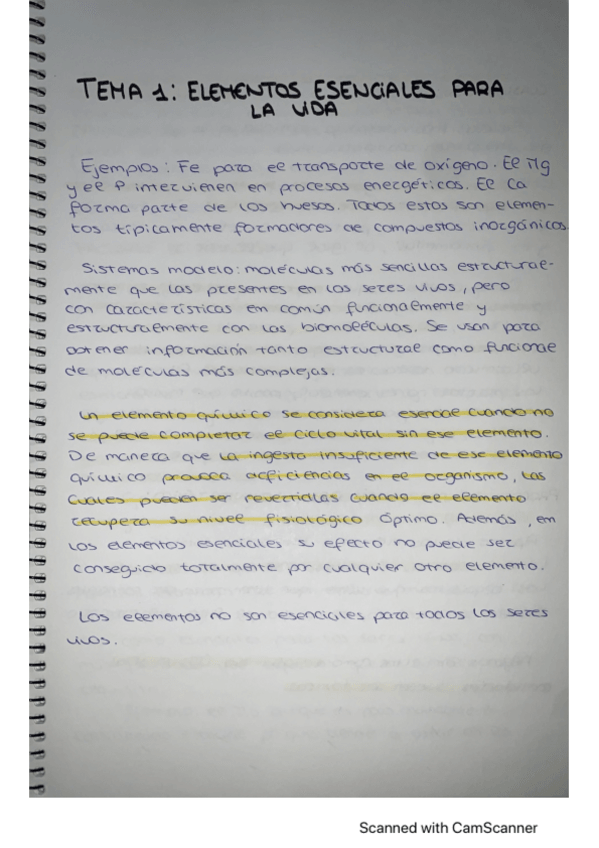 TEMA 1: ELEMENTOS ESENCIALES PARA
LA VIDA
Ejemplos: Fe para el transporte de oxígeno. El Mg
y el P intervienen en procesos energéticos. El Ca
forma parte de los huesos. Todos estos son elemen-
tos típicamente formadores de compuestos inorgánicos
Sistemas modelo: moléculas más sencillas estructural-
mente que las presentes en los seres vivos, pero
con características en común funcionalmente y
estructuralmente con las biomoléculas. Se usan para
obtener información tanto estructural como funcional
de moléculas más complejas.
Un elemento químico se considera esencial cuando no
se puede completar el ciclo vital sin ese elemento.
De manera que la ingesta insuficiente de ese elemento
químico provoca deficiencias en el organismo, las
cuales pueden ser revertidas cuando el elemento
recupera su nivel fisiológico óptimo. Además, en
los elementos esenciales su efecto no puede ser
conseguido totalmente por cualquier otro elemento.
Los elementos no son esenciales para todos los seres
vivos.
Scanned with CamScanner